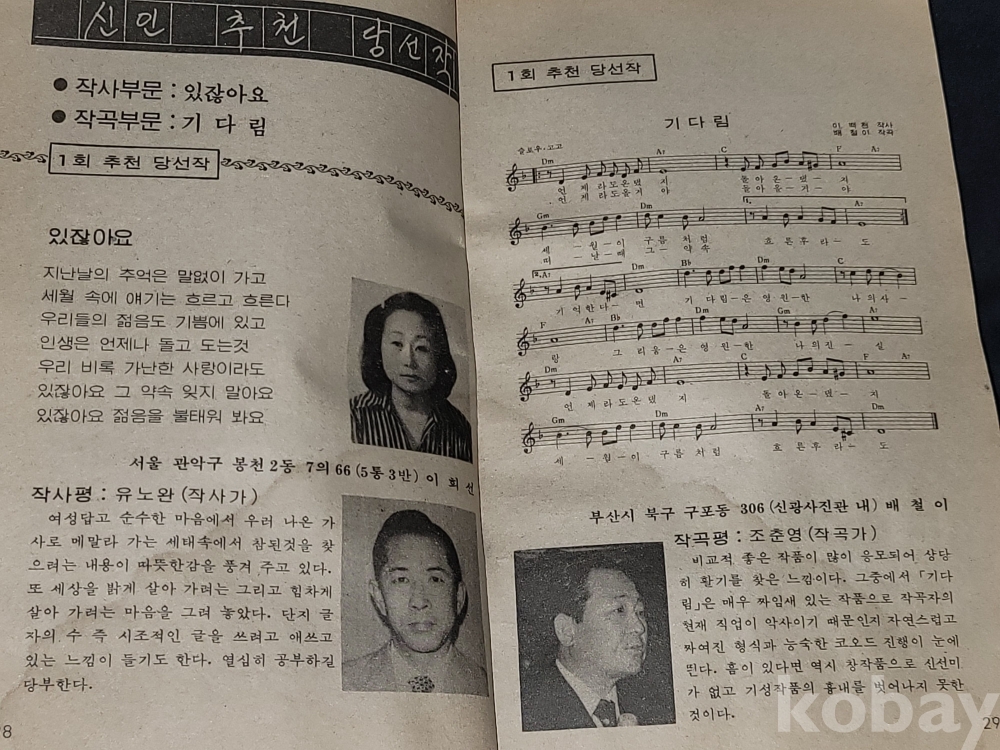 신인 추천 당선작
● 작사부문 : 있잖아요
● 작곡부문 : 기 다 림
1회 추천 당선작
있잖아요
지난날의 추억은 말없이 가고
세월 속에 얘기는 흐르고 흐른다
우리들의 젊음도 기쁨에 있고
인생은 언제나 돌고 도는것
우리 비록 가난한 사랑이라도
있잖아요 그 약속 잊지 말아요
있잖아요 젊음을 불태워 봐요
서울 관악구 봉천2동 7의 66 (5통3반) 이 희 선
작사평 : 유노완 (작사가)
여성답고 순수한 마음에서 우러 나온 가
사로 메말라 가는 세태속에서 참된것을 찾
으려는 내용이 따뜻한감을 풍겨 주고 있다.
또 세상을 밝게 살아 가려는 그리고 힘차게
살아 가려는 마음을 그려 놓았다. 단지 글
자의 수 즉 시조적인 글을 쓰려고 애쓰고
있는 느낌이 들기도 한다. 열심히 공부하길
당부한다.
8
1회 추천 당선작
기 다 림
이 백 천 작사
배 철 이 작곡
슬로우·고고
Dm A7 C F A7
언 제 라도온댔 지 돌 아 온 - 댔 - 지
언 제 라도올거 야 돌 아 올 - 거 - 야
Gm Dm 1. A7
세 - 월 - 이 구 름 처 럼 흐 른 후 라 - 도
떠 - 날 - 때 그 - 약 속
2. A7 Dm Bb Dm C
기 억 한 다 - 면 기 다 림 - 은 영 원 - 한 나 의 사 -
F A7 Bb Dm Gm A7
랑 그 리 움 - 은 영 원 - 한 나 의 진 - 실
Dm A7 C F A7
언 제 라 도 온 댔 지 돌 아 온 - 댔 - 지
Gm Dm A7 Dm
세 - 월 - 이 구 름 처 럼 흐 른 후 라 - 도
부산시 북구 구포동 306 (신광사진관 내) 배 철 이
작곡평 : 조춘영 (작곡가)
비교적 좋은 작품이 많이 응모되어 상당
히 활기를 찾은 느낌이다. 그중에서 「기다
림」은 매우 짜임새 있는 작품으로 작곡자의
현재 직업이 악사이기 때문인지 자연스럽고
짜여진 형식과 능숙한 코오드 진행이 눈에
띈다. 흠이 있다면 역시 창작품으로 신선미
가 없고 기성작품의 흉내를 벗어나지 못한
것이다.
29
kobay